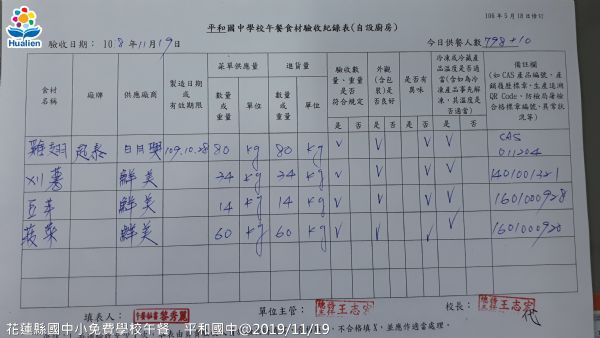 Hualien
106年5月18日修訂
平和國中學校午餐食材驗收紀錄表(自設廚房)
驗收日期：108年11月19日
今日供餐人數798+10
食材名稱 廠牌 供應廠商 製造日期或有效期限 菜單供應量 進貨量 驗收數量、重量是否符合規定 外觀(含包裝)是否良好 是否有異味 冷凍或冷藏產品溫度是否適當(含如為冷凍產品事先解凍，其溫度是否適當) 備註欄(如CAS產品編號、產銷履歷編號、生產追溯QR Code、防檢局屠檢合格標章編號、異常狀況等)
數量或重量 單位 數量或重量 單位 是 否 是 否 是 否 是 否
雞翅 冠泰 日月興 109.10.28 80 kg 80 kg V V V V CAS 011204
刈薯 鮮美 34 kg 34 kg V V V V 1401001321
豆芋 鮮美 14 kg 14 kg V V V V 1601000928
菠菜 鮮美 60 kg 60 kg V V V V 1601000920
填表人： 黎秀鳳
單位主管： 王志宏
校長： 王志宏 代
不合格填X，並應作適當處理。
花蓮縣國中小免費學校午餐 平和國中@2019/11/19